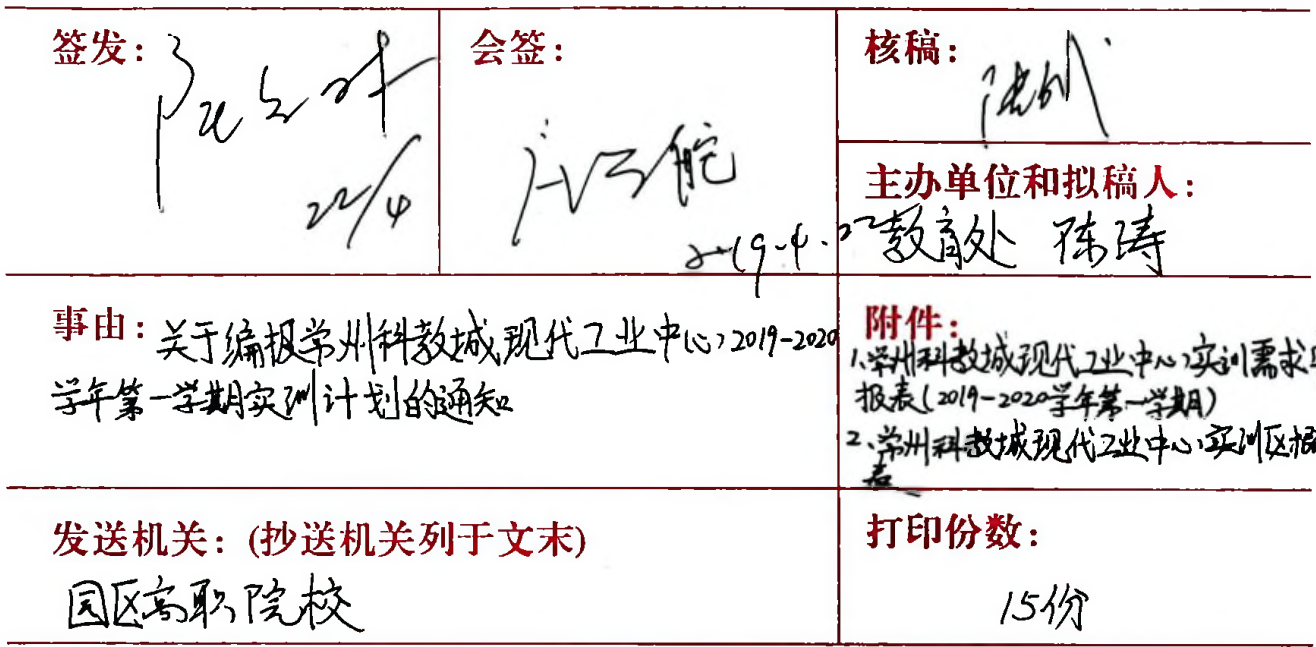 签发:
22/4
会签:
2019.4.22
核稿:
主办单位和拟稿人:
教育处 陈涛
事由: 关于编报常州科教城现代工业中心2019-2020
学年第一学期实训计划的通知
附件:
1、常州科教城现代工业中心实训需求
报表(2019-2020学年第一学期)
2、常州科教城现代工业中心实训区
表
发送机关: (抄送机关列于文末)
园区高职院校
打印份数:
15份